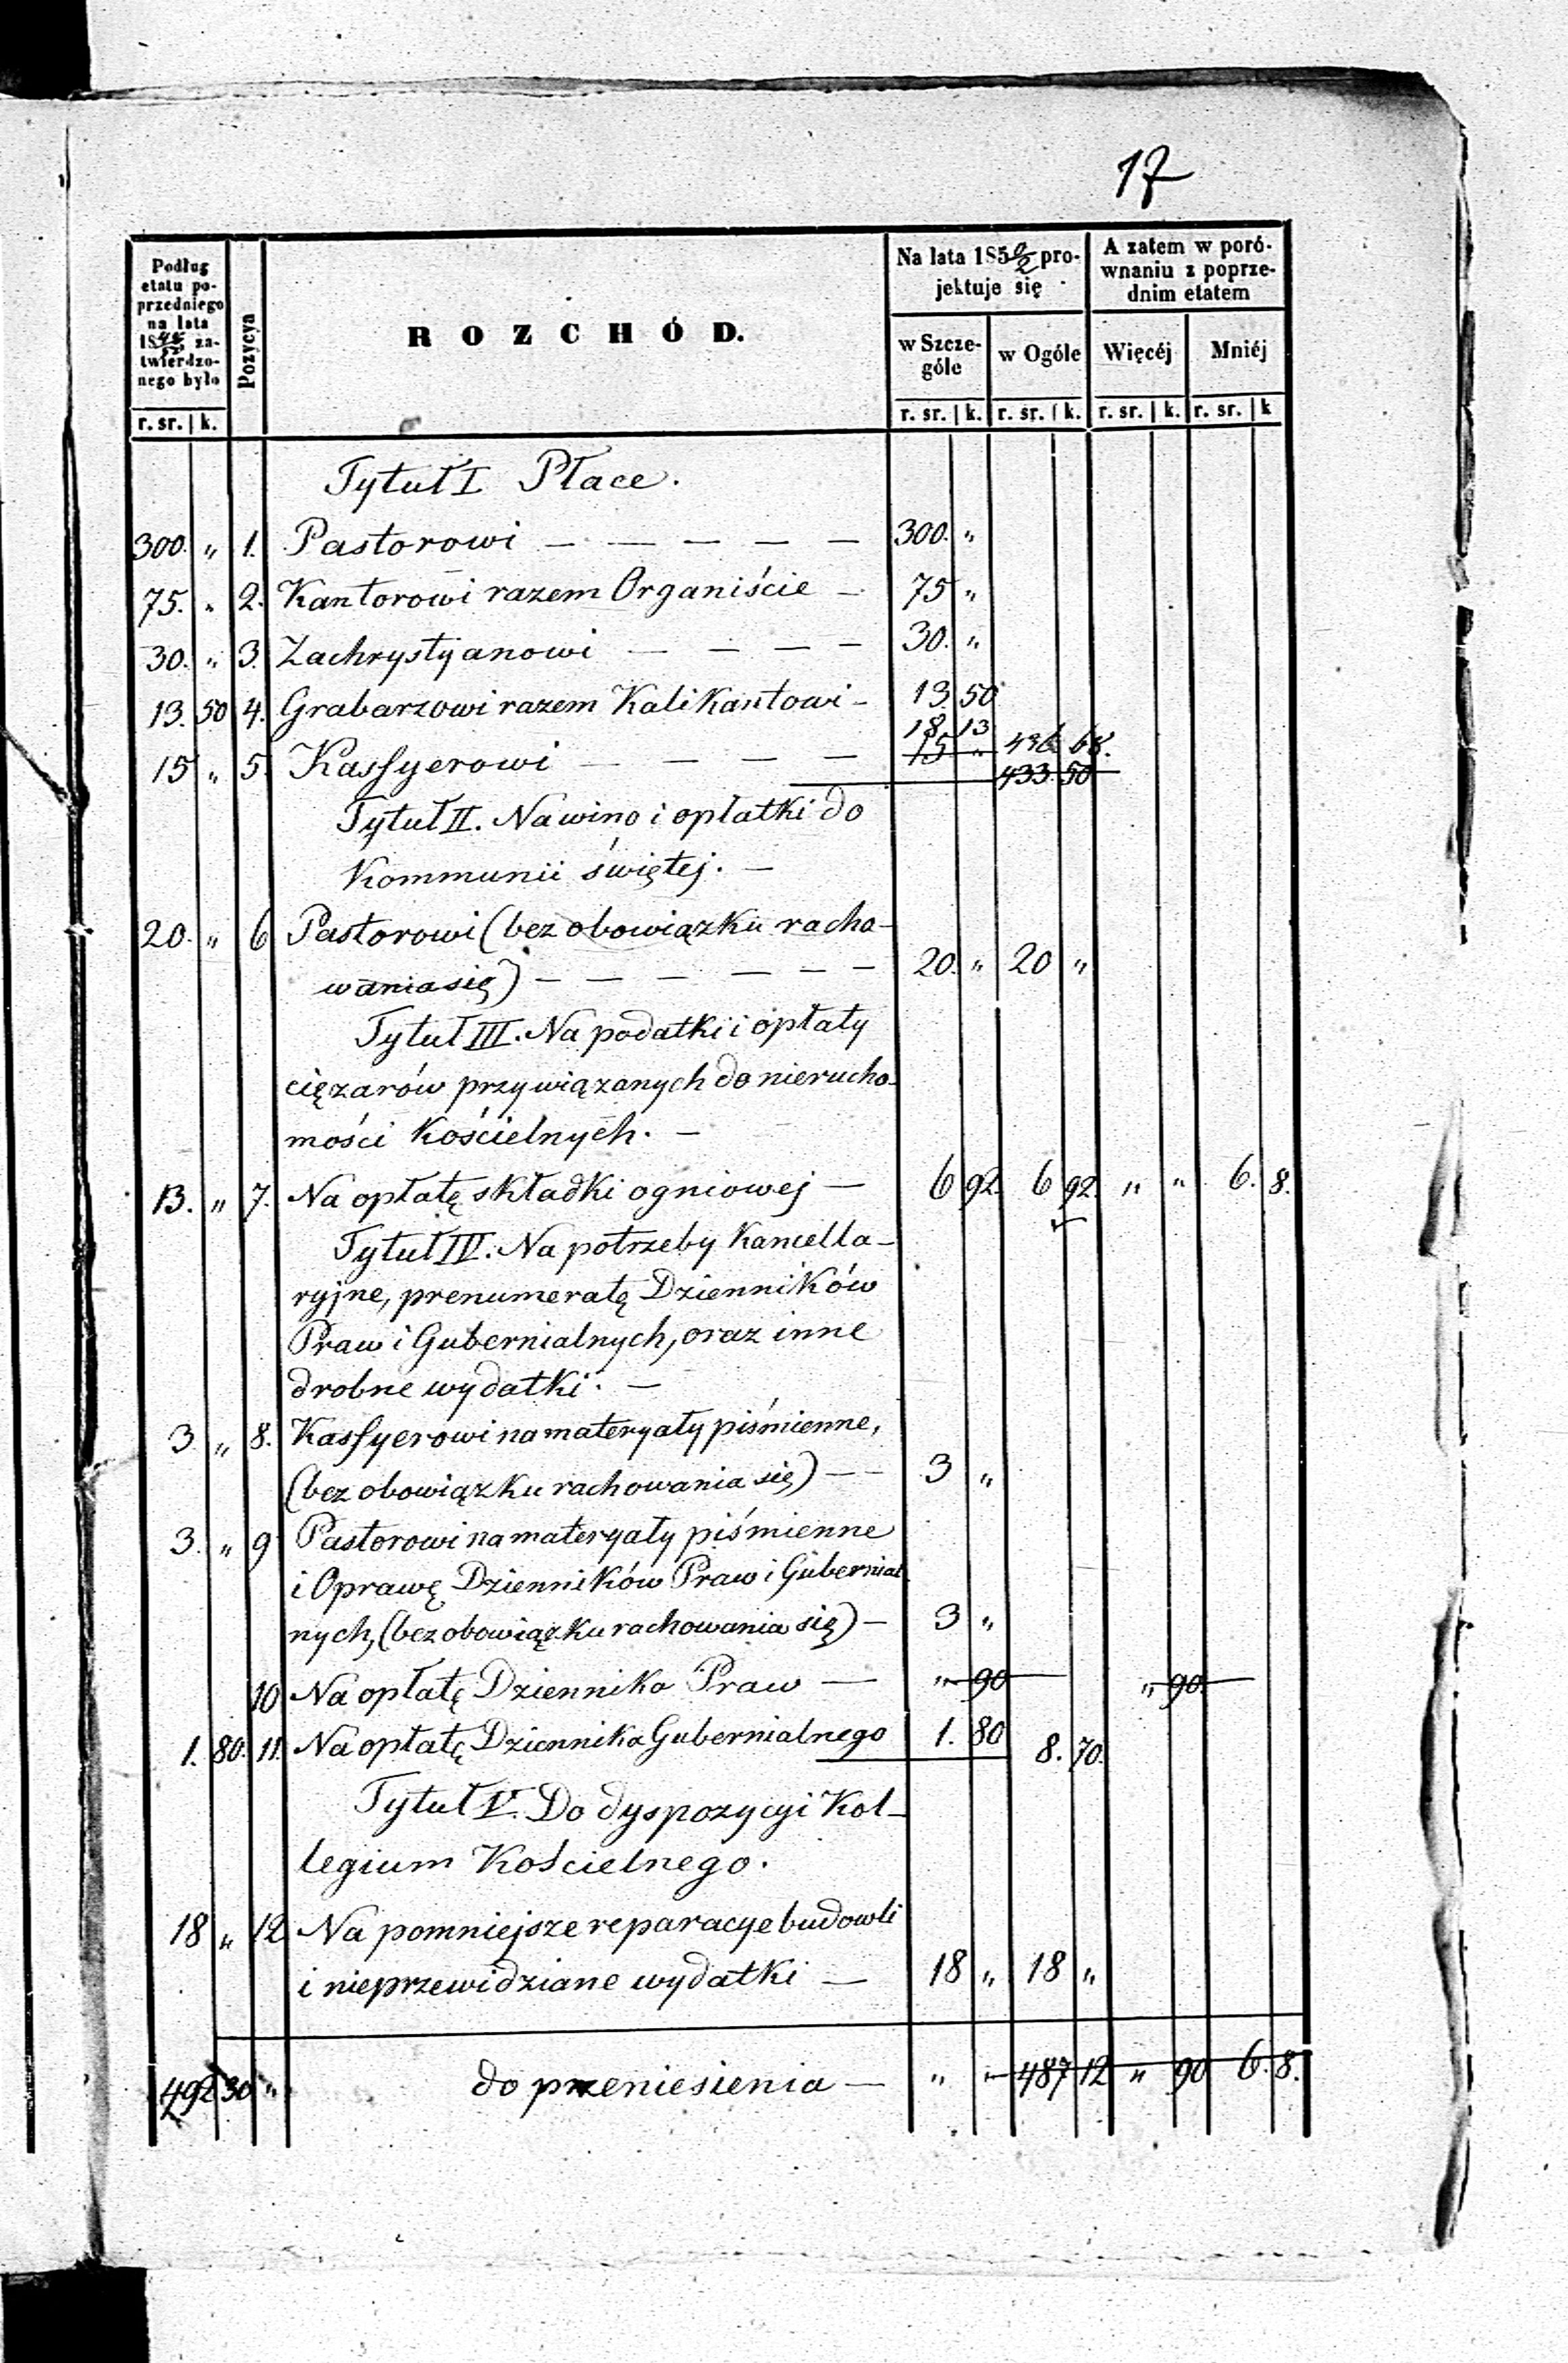 17
Podług etatu poprzedniego na lata 18 zatwierdzonego było
Pozycya
R O Z C H Ó D.
Na lata 1850/2 projektuje się
A zatem w porównaniu z poprzednim etatem
w Szczególe
w Ogóle
Więcéj
Mniéj
r. sr. k. r. sr. k. r. sr. k. r. sr. k. r. sr. k
Tytuł I Płace.
300. „ 1. Pastorowi — — — — — 300. „
75. „ 2. Kantorowi razem Organiście — 75 „
30. „ 3. Zachrystyanowi — — — — 30. „
13. 50 4. Grabarzowi razem Kalikantowi — 13. 50
18 13
15 „ 5. Kassyerowi — — — — 15 „ 436 68.
433. 50
Tytuł II. Na wino i opłatki do
Kommunii świętej. —
20. „ 6 Pastorowi (bez obowiązku racho-
wania się) — — — — — — 20. „ 20 „
Tytuł III. Na podatki i opłaty
ciężarów przywiązanych do nierucho-
mości Kościelnych. —
13. „ 7. Na opłatę składki ogniowej — 6 92. 6 92. „ „ 6. 8.
Tytuł IV. Na potrzeby Kancella-
ryjne, prenumeratę Dzienników
Praw i Gubernialnych, oraz inne
drobne wydatki. —
3 „ 8. Kassyerowi na materyały piśmienne,
(bez obowiązku rachowania się) — — 3 „
3. „ 9 Pastorowi na materyały piśmienne
i Oprawę Dzienników Praw i Gubernial
nych, (bez obowiązku rachowania się) — 3 „
10 Na opłatę Dziennika Praw — „ 90 „ 90.
1. 80. 11. Na opłatę Dziennika Gubernialnego 1. 80 8. 70.
Tytuł V. Do dyspozycyi Kol-
legium Kościelnego.
18 „ 12 Na pomniejsze reparacye budowli
i nieprzewidziane wydatki — 18 „ 18 „
492 30 „ do przeniesienia — „ „ 487 12 „ 90 6. 8.